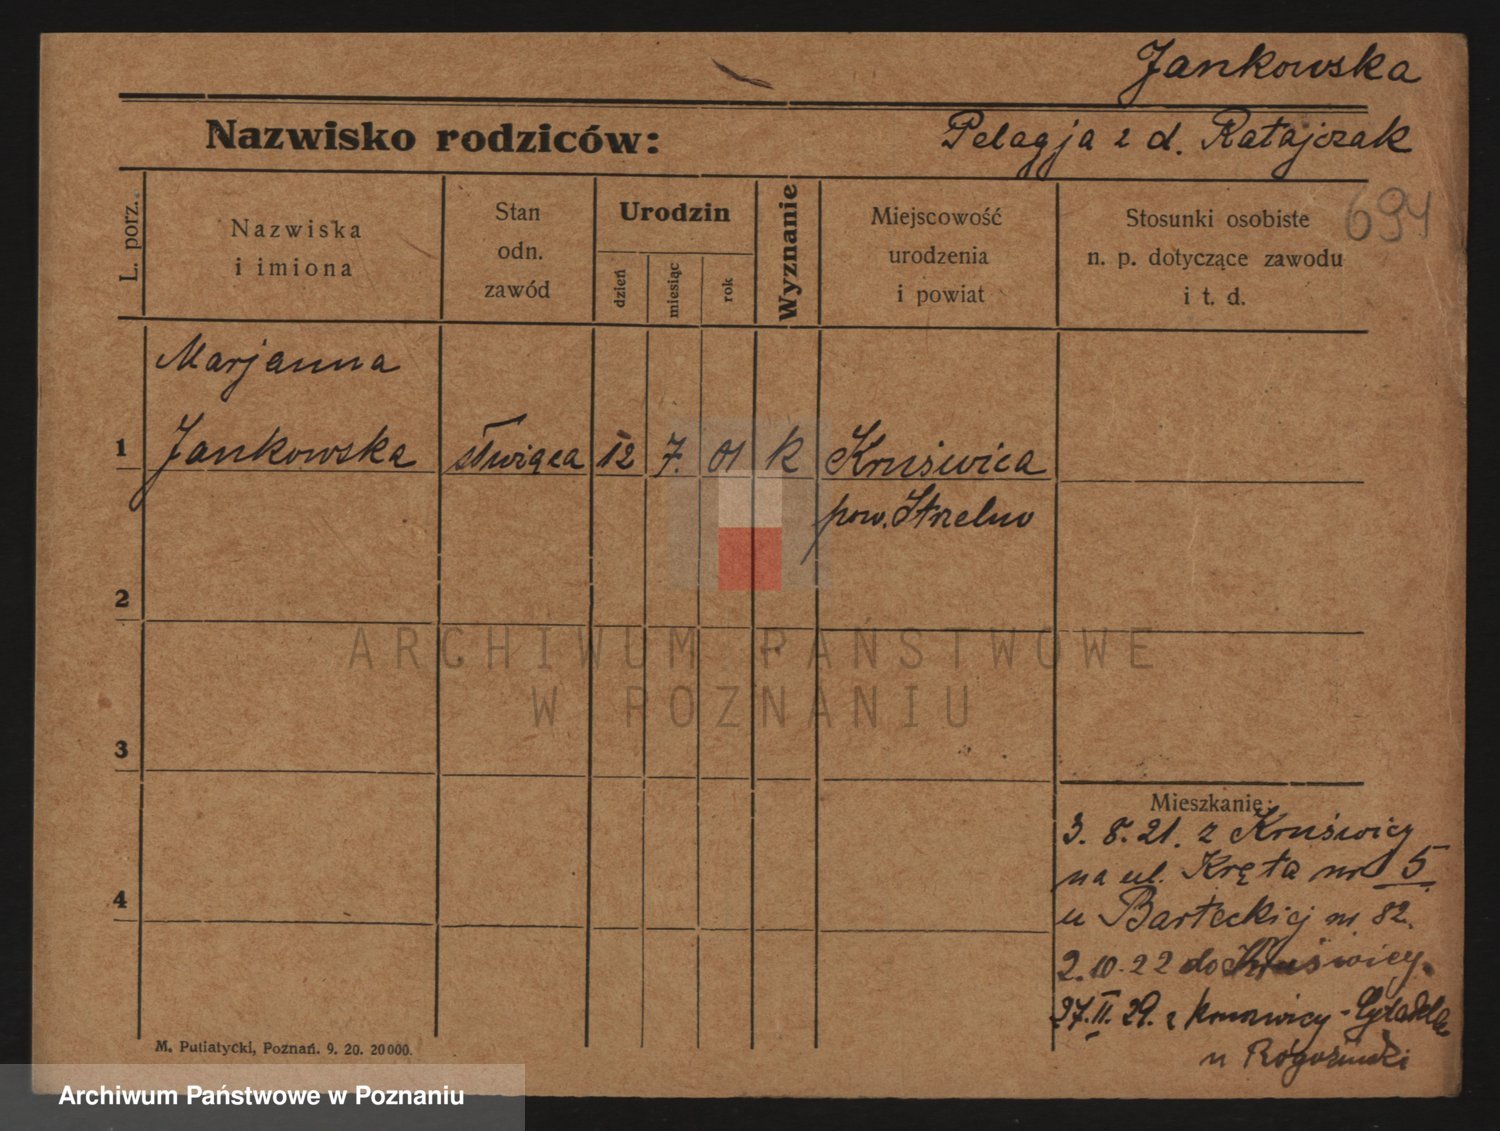 Jankowska
Nazwisko rodziców:
Pelagja z d. Ratajczak
694
L. porz.
Nazwiska
i imiona
Stan
odn.
zawód
Urodzin
dzień
miesiąc
rok
Wyznanie
Miejscowość
urodzenia
i powiat
Stosunki osobiste
n. p. dotyczące zawodu
i t. d.
Marjanna
1 Jankowska służąca 12 7. 01 k Kruświca
pow. Strzelno
2
3
4
Mieszkanie:
3. 8. 21. z Kruświcy
na ul. Kręta nr 5
u Barteckiej nr 82.
2.10.22 do Kruświcy.
27.II.29. z Kruswicy - Cytadela
u Rogoziński
M. Putiatycki, Poznań. 9. 20. 20000.
ARCHIWUM PAŃSTWOWE
W POZNANIU
Archiwum Państwowe w Poznaniu